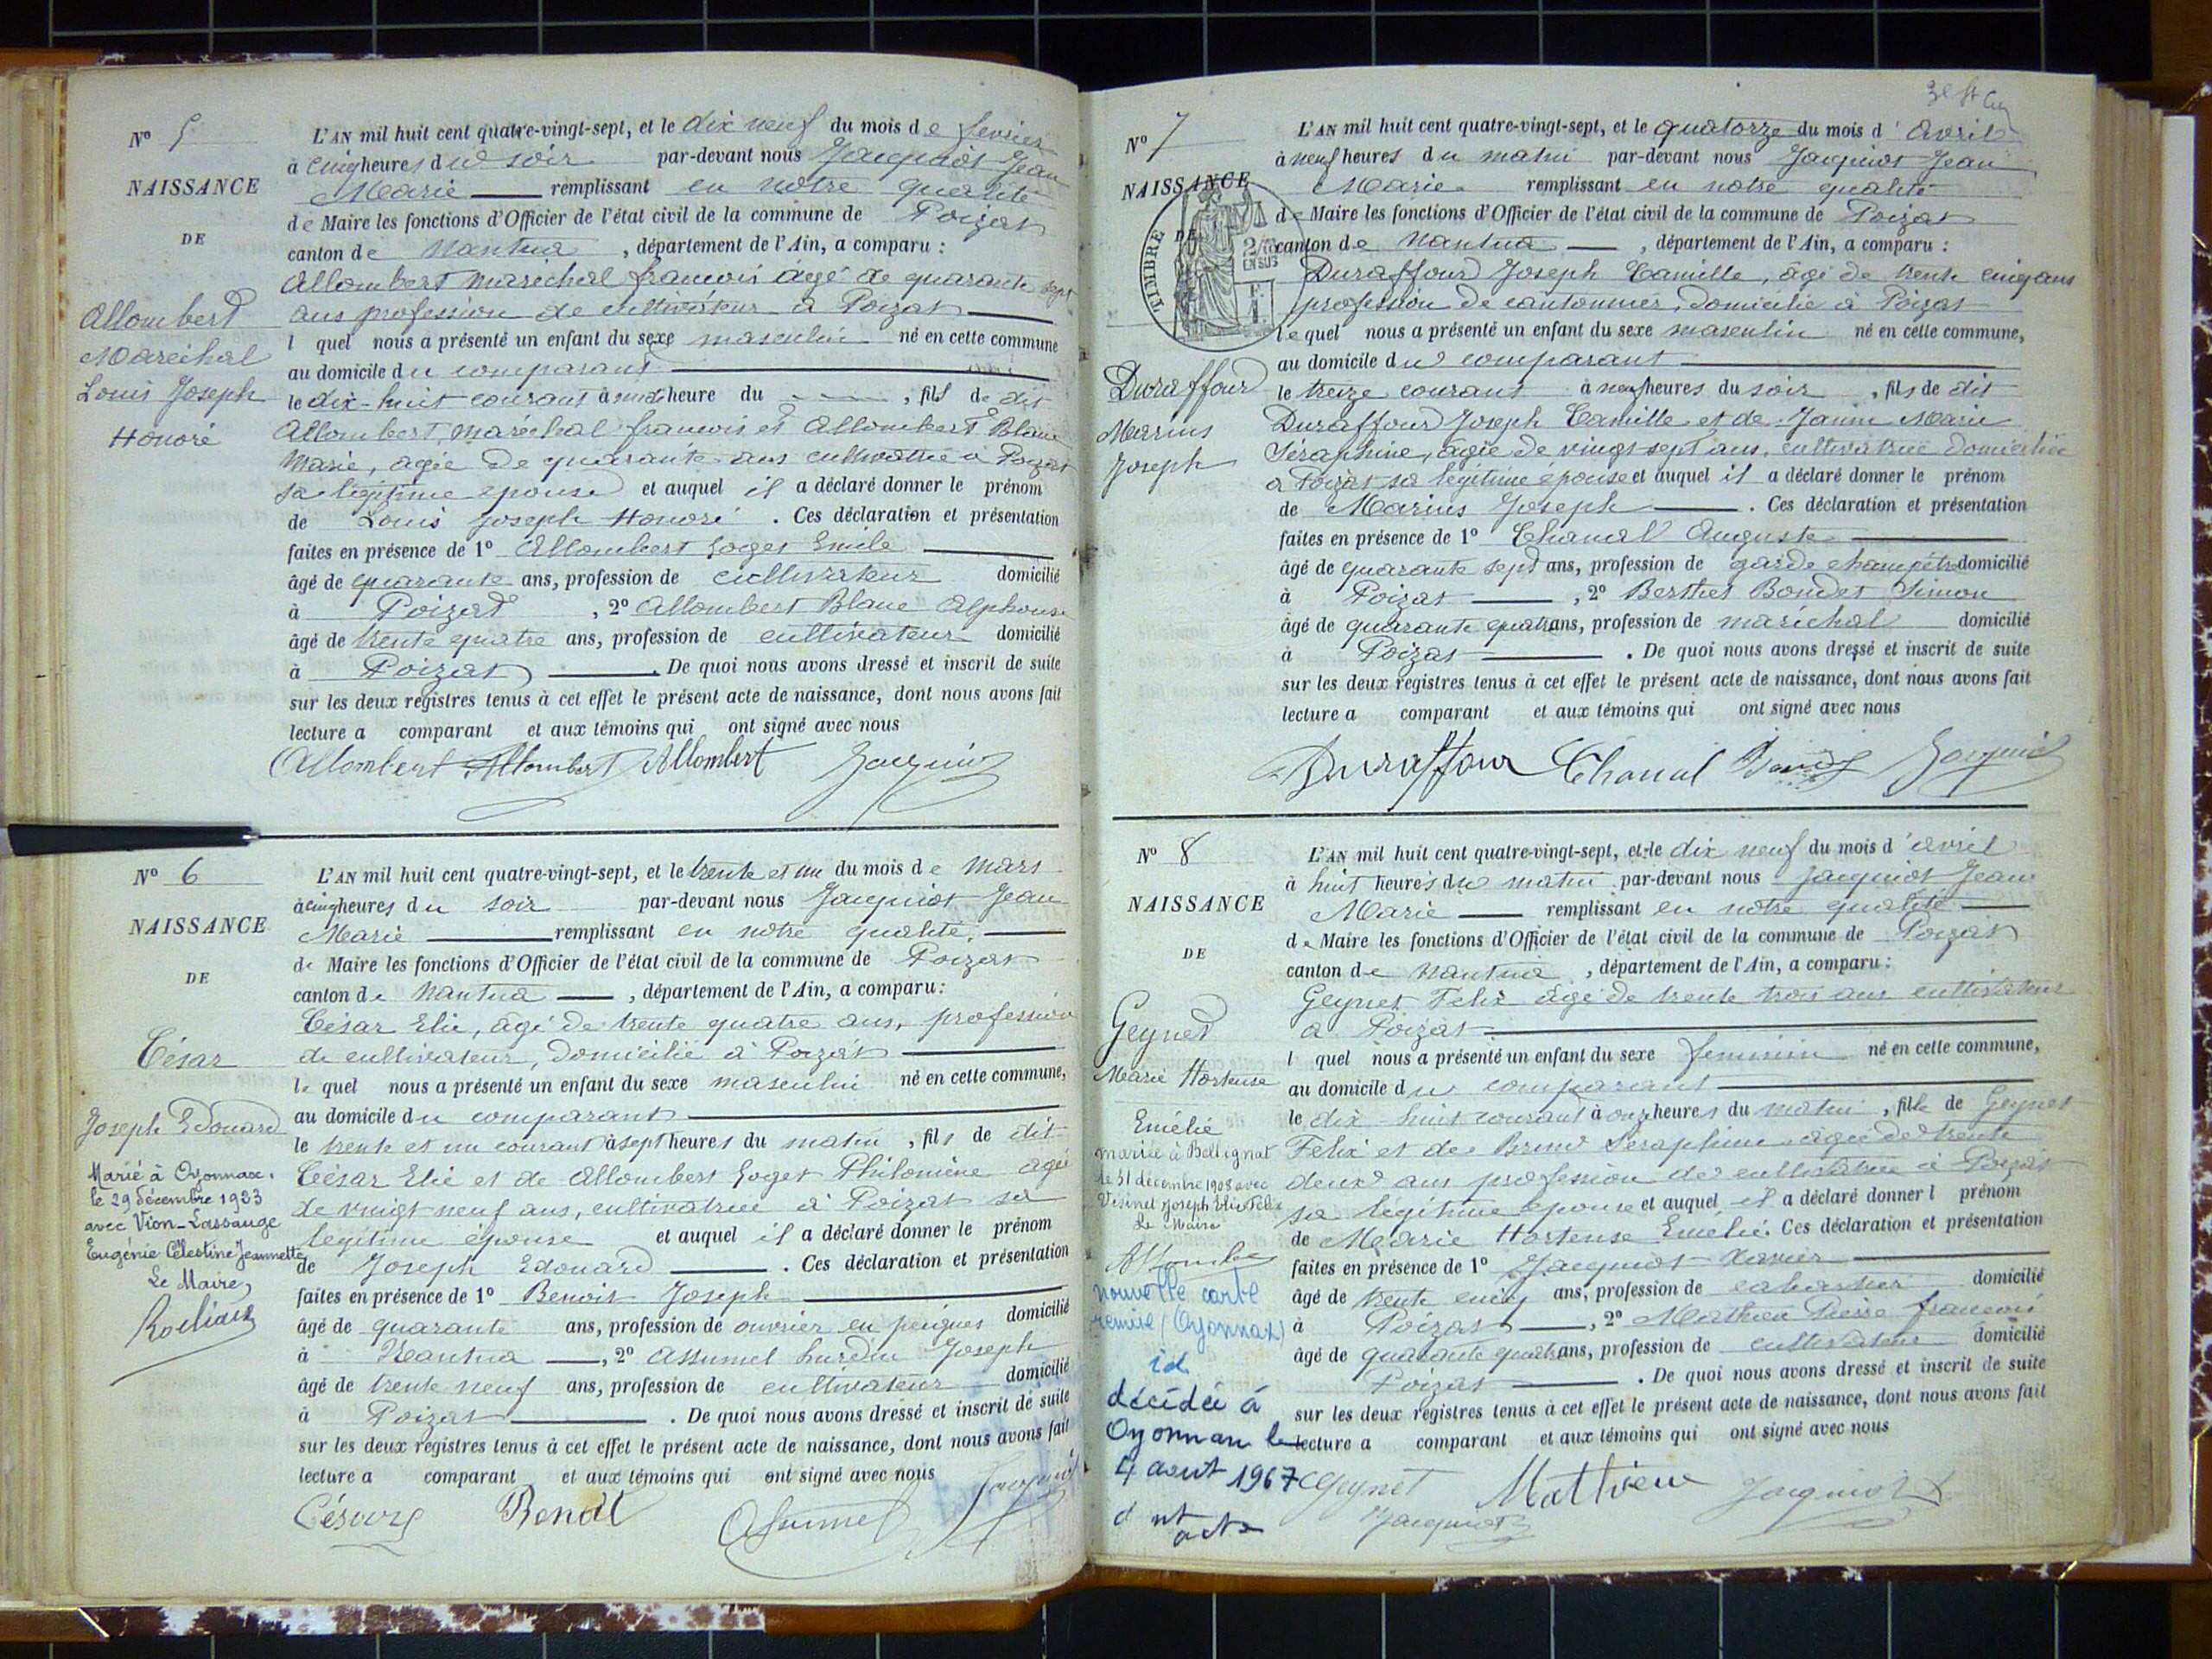 N° 5
NAISSANCE
DE
Allombert
Maréchal
Louis Joseph
Honoré
L'AN mil huit cent quatre-vingt-sept, et le dix neuf du mois de fevrier
à cinq heures du soir par-devant nous Jacquiot Jean
Marie remplissant en notre qualité
de Maire les fonctions d'Officier de l'état civil de la commune de Poizat
canton de Nantua, département de l'Ain, a comparu :
Allombert Marechal francois âgé de quarante sept
ans profession de cultivateur à Poizat
l quel nous a présenté un enfant du sexe masculin né en cette commune
au domicile du comparant
le dix-huit courant à heure du , fils de dit
Allombert, maréchal francois et Allombert Blanc
Marie, agée de quarante ans cultivatrice à Poizat
sa légitime épouse et auquel il a déclaré donner le prénom
de Louis Joseph Honoré. Ces déclaration et présentation
faites en présence de 1° Allombert Goget Emile
âgé de quarante ans, profession de cultivateur domicilié
à Poizat, 2° Allombert Blanc Alphonse
âgé de trente quatre ans, profession de cultivateur domicilié
à Poizat. De quoi nous avons dressé et inscrit de suite
sur les deux registres tenus à cet effet le présent acte de naissance, dont nous avons fait
lecture a comparant et aux témoins qui ont signé avec nous
Allombert Allombert Allombert Jacquiot
N° 6
NAISSANCE
DE
César
Joseph Edouard
Marié à Oyonnax,
le 29 décembre 1933
avec Vion-Lassauge
Eugénie Célestine Jeannette
Le Maire,
L'AN mil huit cent quatre-vingt-sept, et le trente et un du mois de mars
à cinq heures du soir par-devant nous Jacquiot Jean
Marie remplissant en notre qualité,
de Maire les fonctions d'Officier de l'état civil de la commune de Poizat
canton de Nantua, département de l'Ain, a comparu :
César Elie, âgé de trente quatre ans, profession
de cultivateur, domicilié à Poizat
le quel nous a présenté un enfant du sexe masculin né en cette commune,
au domicile du comparant
le trente et un courant à sept heures du matin, fils de dit
César Elie et de Allombert Goget Philomène agée
de vingt neuf ans, cultivatrice à Poizat sa
légitime épouse et auquel il a déclaré donner le prénom
de Joseph Edouard. Ces déclaration et présentation
faites en présence de 1° Benoit Joseph
âgé de quarante ans, profession de ouvrier en peignes domicilié
à Nantua, 2° Assumel Lurdin Joseph
âgé de trente neuf ans, profession de cultivateur domicilié
à Poizat. De quoi nous avons dressé et inscrit de suite
sur les deux registres tenus à cet effet le présent acte de naissance, dont nous avons fait
lecture a comparant et aux témoins qui ont signé avec nous Jacquiot
César Benoit Assumel
N° 7
NAISSANCE
DE
TIMBRE
2/10
EN SUS
Duraffour
Marius
Joseph
L'AN mil huit cent quatre-vingt-sept, et le quatorze du mois d'avril
à neuf heures du matin par-devant nous Jacquiot Jean
Marie remplissant en notre qualité
de Maire les fonctions d'Officier de l'état civil de la commune de Poizat
canton de Nantua, département de l'Ain, a comparu :
Duraffour Joseph Camille, âgé de trente cinq ans
profession de cantonnier, domicilié à Poizat
le quel nous a présenté un enfant du sexe masculin né en cette commune,
au domicile du comparant
le treize courant à neuf heures du soir, fils de dit
Duraffour Joseph Camille et de Janin Marie
Séraphine, agée de vingt sept ans, cultivatrice domiciliée
à Poizat sa légitime épouse et auquel il a déclaré donner le prénom
de Marius Joseph. Ces déclaration et présentation
faites en présence de 1° Chanal Auguste
âgé de quarante sept ans, profession de garde champêtre domicilié
à Poizat, 2° Berthet Bondet Simon
âgé de quarante quatre ans, profession de maréchal domicilié
à Poizat. De quoi nous avons dressé et inscrit de suite
sur les deux registres tenus à cet effet le présent acte de naissance, dont nous avons fait
lecture a comparant et aux témoins qui ont signé avec nous
Duraffour Chanal Jacquiot
N° 8
NAISSANCE
DE
Geynet
Marie Hortense
Emélie
mariée à Bellignat
le 31 décembre 1908 avec
Visinet Joseph Elie Félix
Le Maire
nouvelle carte
remise (Oyonnax)
id
décédée à
Oyonnax le
4 aout 1967
L'AN mil huit cent quatre-vingt-sept, et le dix neuf du mois d'avril
à huit heures du matin par-devant nous Jacquiot Jean
Marie remplissant en notre qualité
de Maire les fonctions d'Officier de l'état civil de la commune de Poizat
canton de Nantua, département de l'Ain, a comparu :
Geynet Felix âgé de trente trois ans cultivateur
a Poizat
l quel nous a présenté un enfant du sexe feminin né en cette commune,
au domicile du comparant
le dix-huit courant à onze heures du matin, fille de Geynet
Felix et de Brun Seraphine agée de trente
deux ans profession de cultivatrice à Poizat
sa légitime épouse et auquel il a déclaré donner l prénom
de Marie Hortense Emélie. Ces déclaration et présentation
faites en présence de 1° Jacquiot Xavier
âgé de trente cinq ans, profession de cabaretier domicilié
à Poizat, 2° Mathieu Pierre francois
âgé de quarante quatre ans, profession de cultivateur domicilié
Poizat. De quoi nous avons dressé et inscrit de suite
sur les deux registres tenus à cet effet le présent acte de naissance, dont nous avons fait
lecture a comparant et aux témoins qui ont signé avec nous
Geynet Mathieu Jacquiot
Jacquiot